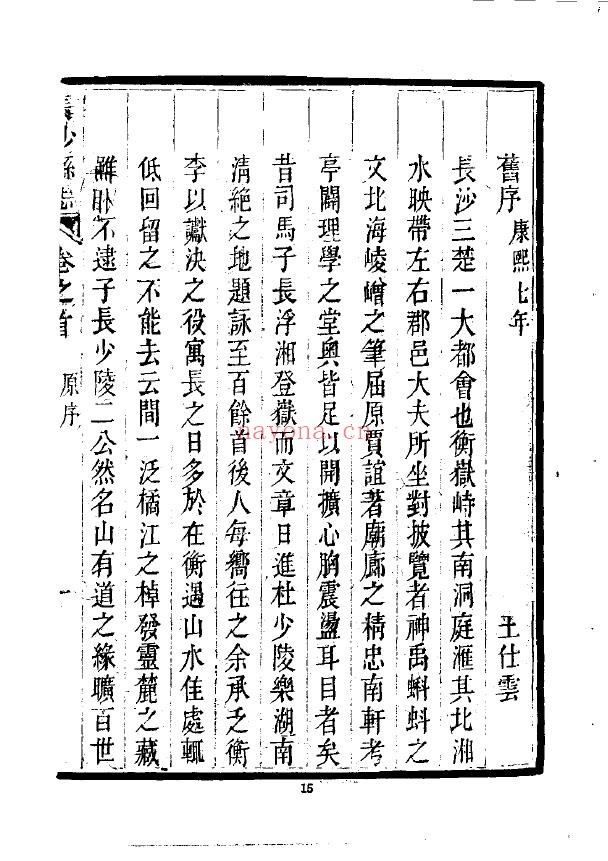 舊序 康熙七年 王仕雲
長沙三楚一大都會也衡嶽峙其南洞庭滙其北湘
水映帶左右郡邑大夫所坐對披覽者神禹蝌蚪之
文北海崚嶒之筆屈原賈誼著廟廊之精忠南軒考
亭闢理學之堂奧皆足以開擴心胸震盪耳目者矣
昔司馬子長浮湘登嶽而文章日進杜少陵樂湖南
清絕之地題詠至百餘首後人每嚮往之余承乏衡
李以讞決之役寓長之日多於在衡遇山水佳處輒
低回留之不能去云間一泛橘江之棹發靈麓之藏
雖卧不逮子長少陵二公然名山有道之緣曠百世
長沙縣志 卷之首 原序 一
15
nayona.cn